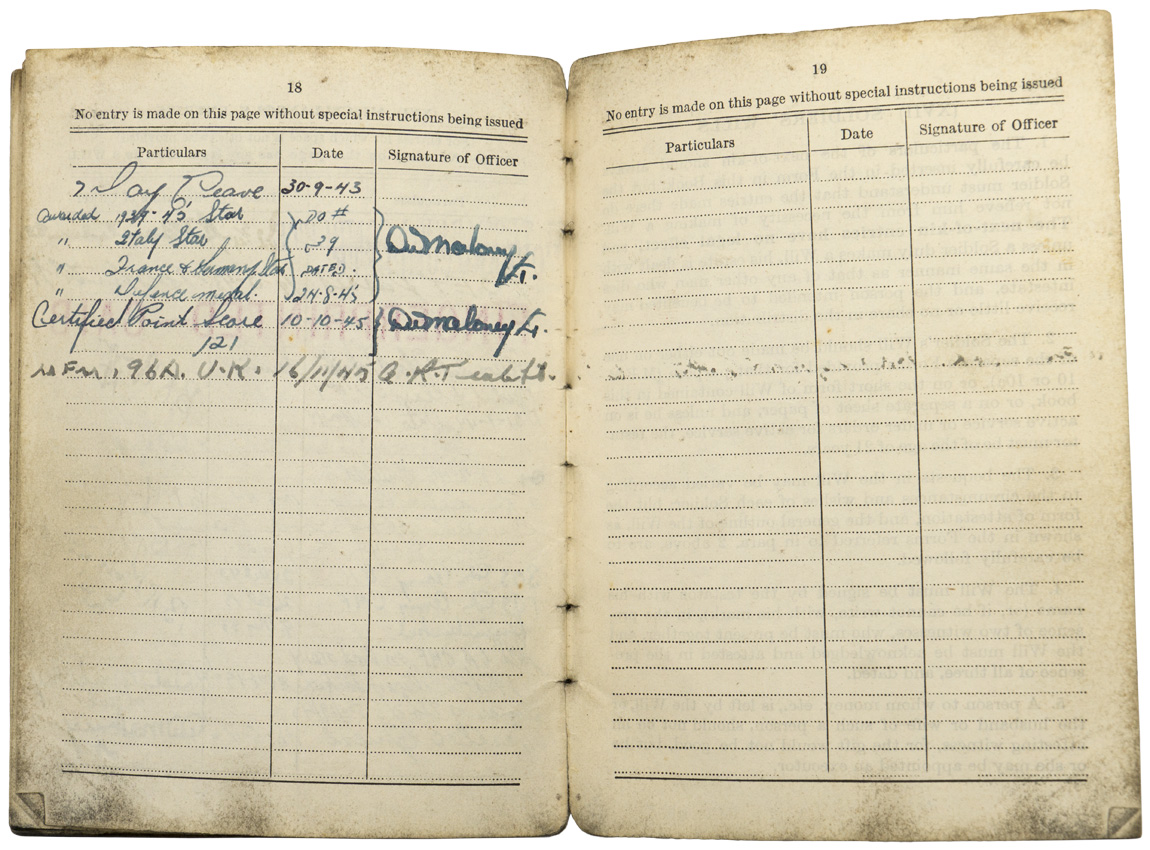 18
No entry is made on this page without special instructions being issued
Particulars Date Signature of Officer
7 Day Leave 30-9-43
Awarded 1939-45 Star DO #
" Italy Star 39
" France & Germany Star DATED.
" Defence medal. 24-8-45
D. Maloney Lt.
Certified Point Score 10-10-45 D. Maloney Lt.
121
96A. U.K. 16/11/45
19
No entry is made on this page without special instructions being issued
Particulars Date Signature of Officer